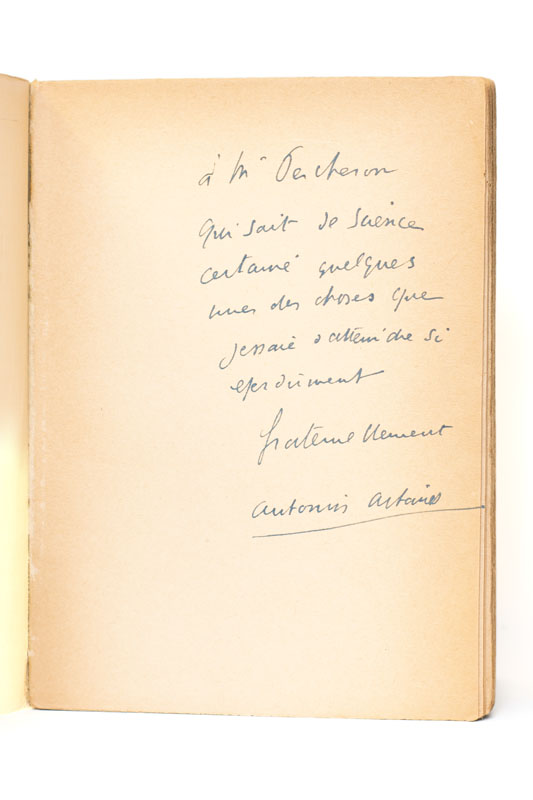 à Mr Percheron
qui sait de science
certaine quelques
unes des choses que
j'essaie d'atteindre si
éperdûment
fraternellement
Antonin Artaud